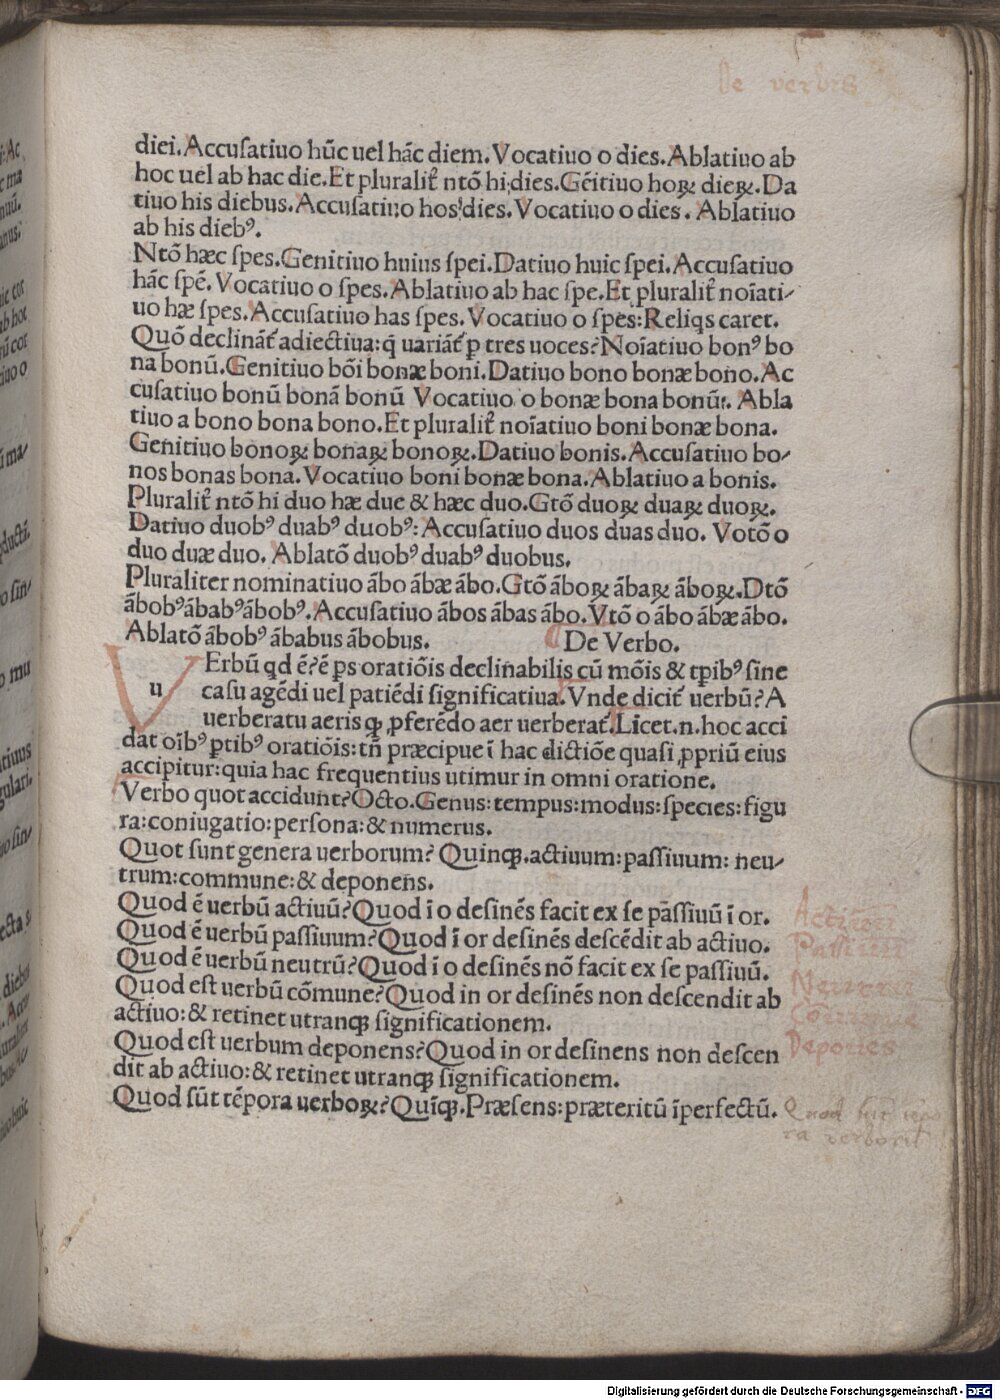 De verbis
diei.Accuſatiuo hūc uel hāc diem.Vocatiuo o dies.Ablatiuo ab
hoc uel ab hac die.Et pluralit᷑ ntō hi dies.Gēitiuo hoꝝ dieꝝ.Da
tiuo his diebus.Accuſatiuo hos dies.Vocatiuo o dies. Ablatiuo
ab his diebꝰ.
Ntō hæc ſpes.Genitiuo huius ſpei.Datiuo huic ſpei.Accuſatiuo
hāc ſpē.Vocatiuo o ſpes.Ablatiuo ab hac ſpe.Et pluralit᷑ noīati⸗
uo hæ ſpes.Accuſatiuo has ſpes.Vocatiuo o ſpes:Reliqs caret.
Quō declināt᷑ adiectiua:q̄ uariāt᷑ ꝑ tres uoces?Noīatiuo bonꝰ bo
na bonū.Genitiuo bōi bonæ boni.Datiuo bono bonæ bono.Ac
cuſatiuo bonū bonā bonū Vocatiuo o bonæ bona bonū. Abla
tiuo a bono bona bono.Et pluralit᷑ noīatiuo boni bonæ bona.
Genitiuo bonoꝝ bonaꝝ bonoꝝ.Datiuo bonis.Accuſatiuo bo⸗
nos bonas bona.Vocatiuo boni bonæ bona.Ablatiuo a bonis.
Pluralit᷑ ntō hi duo hæ due & hæc duo.Gtō duoꝝ duaꝝ duoꝝ.
Datiuo duobꝰ duabꝰ duobꝰ:Accuſatiuo duos duas duo. Votō o
duo duæ duo. Ablatō duobꝰ duabꝰ duobus.
Pluraliter nominatiuo ābo ābæ ābo.Gtō āboꝝ ābaꝝ āboꝝ.Dtō
ābobꝰābabꝰābobꝰ.Accuſatiuo ābos ābas ābo.Vtō o ābo ābæ ābo.
Ablatō ābobꝰ ābabus ābobus. De Verbo.
VErbū qd ē?ē ps oratiōis declinabilis cū mōis & tꝑibꝰ ſine
u caſu agēdi uel patiēdi ſignificatiua.Vnde dicit᷑ uerbū?A
uerberatu aeris qꝫ ꝓferēdo aer uerberat᷑.Licet.n.hoc acci
dat oībꝰ ꝑtibꝰ oratiōis:tn̄ præcipue ī hac dictiōe quaſi ꝓpriū eius
accipitur:quia hac frequentius utimur in omni oratione.
Verbo quot accidunt?Octo.Genus:tempus:modus:ſpecies:figu
ra:coniugatio:perſona:& numerus.
Quot ſunt genera uerborum? Quinqꝫ.actiuum:paſſiuum: neu⸗
trum:commune:& deponens.
Quod ē uerbū actiuū?Quod ī o deſinēs facit ex ſe paſſiuū ī or.
Quod ē uerbū paſſiuum?Quod ī or deſinēs deſcēdit ab actiuo.
Quod ē uerbū neutrū?Quod ī o deſinēs nō facit ex ſe paſſiuū.
Quod eſt uerbū cōmune?Quod in or deſinēs non deſcendit ab
actiuo:& retinet utranqꝫ ſignificationem.
Quod eſt uerbum deponens?Quod in or deſinens non deſcen
dit ab actiuo:& retinet utranqꝫ ſignificationem.
Quod ſūt tēpora uerboꝝ?Quīqꝫ.Præſens:præteritū īperfectū.
Depones
Digitalisierung gefördert durch die Deutsche Forschungsgemeinschaft - DFG